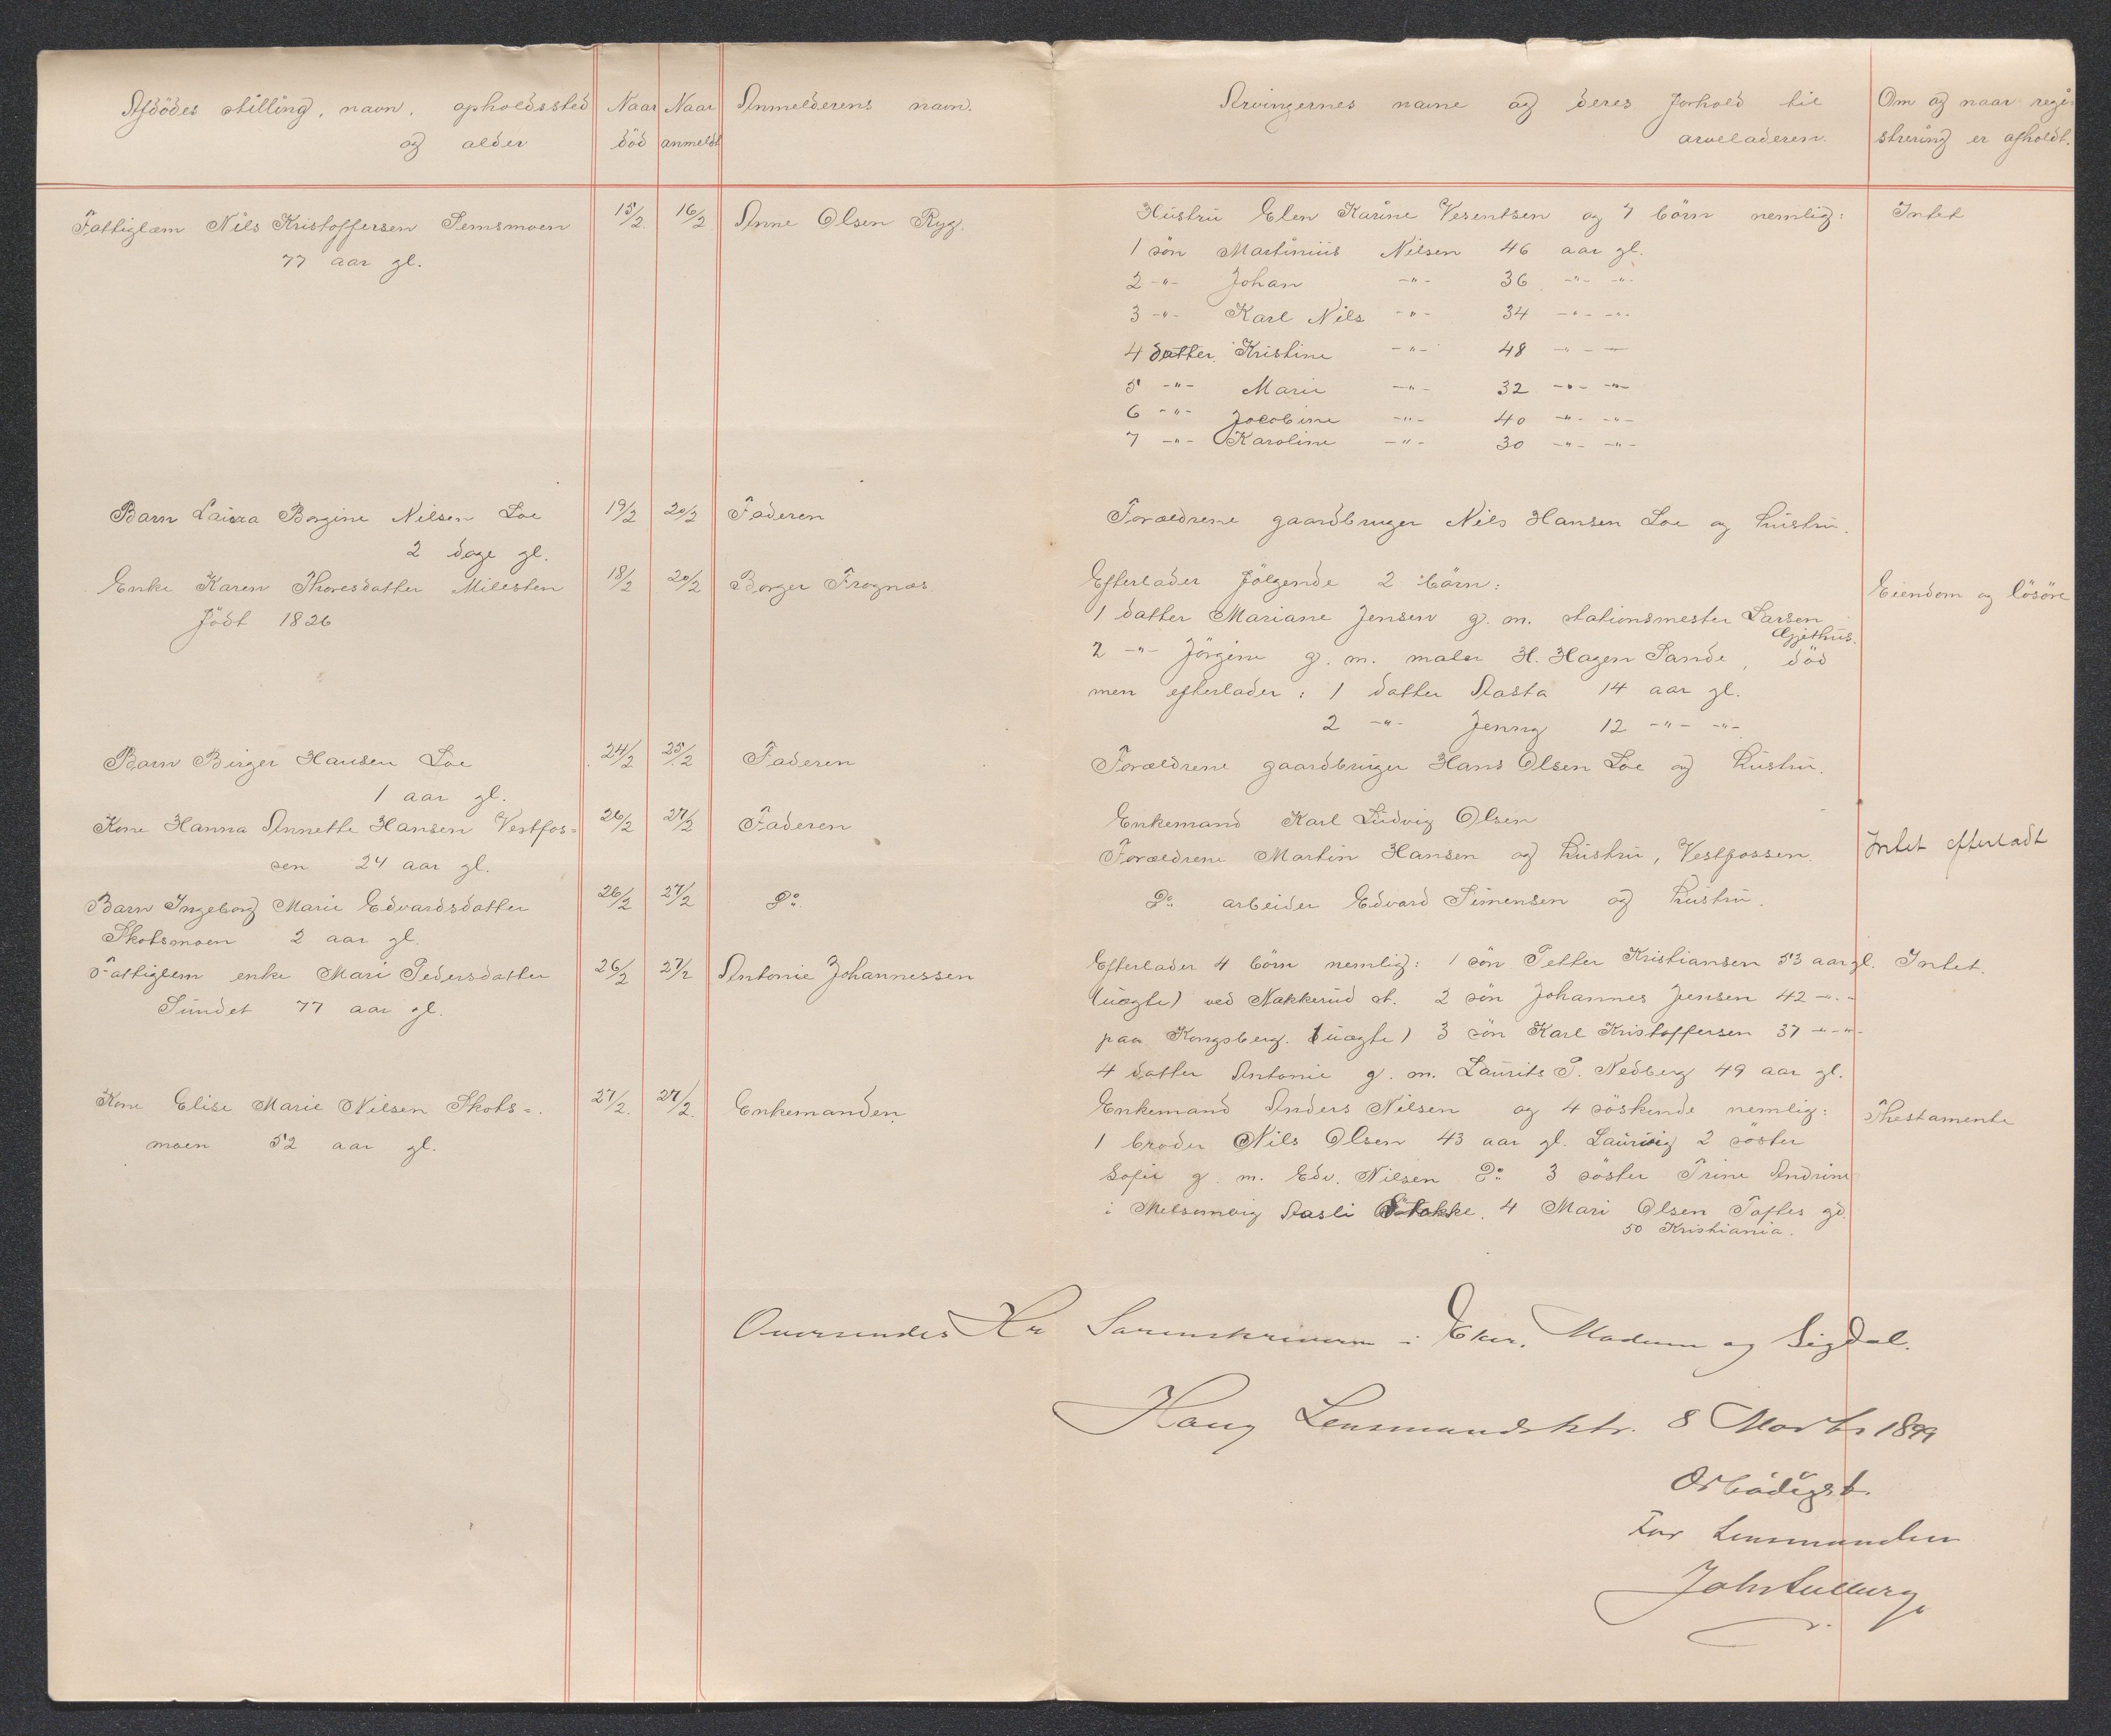 Afdödes stilling, navn, opholdssted og alder
Naar död
Naar anmeldt
Anmelderens navn.
Arvingernes navne og deres forhold til arveladeren.
Om og naar regi- strering er afholdt.
Fattiglæm Nils Kristoffersen Semsmoen 15/2 16/2 Anne Olsen Ryg. Hustru Elen Karine Vesentsen og 7 börn nemlig: Intet
77 aar gl. 1 sön Martinius Nilsen 46 aar gl.
2 -"- Johan -"- 36 -"- -"-
3 -"- Karl Nils -"- 34 -"- -"-
4 datter Kristine -"- 48 -"- -"-
5 -"- Marie -"- 32 -"- -"-
6 -"- Jacobine -"- 40 -"- -"-
7 -"- Karoline -"- 30 -"- -"-
Barn Laura Borgine Nilsen Loe 19/2 20/2 Faderen Forældrene gaardbruger Nils Hansen Loe og hustru.
2 dage gl.
Enke Karen Thoresdatter Milesten 18/2 20/2 Borger Frognæs. Efterlader følgende 2 börn: Eiendom og lösöre
Født 1826 1 datter Mariane Jensen g. m. stationsmester Larsen
Gjethus.
2 -"- Jörgine g. m. maler H. Hagen Sande, död
men efterlader: 1 datter Aasta 14 aar gl.
2 -"- Jenny 12 -"- -"-
Barn Birger Hansen Loe 24/2 25/2 Faderen Forældrene gaardbruger Hans Olsen Loe og hustru.
1 aar gl.
Kone Hanna Annette Hansen Vestfos= 26/2 27/2 Faderen Enkemand Karl Ludvig Olsen
sen 24 aar gl. Forældrene Martin Hansen og hustru, Vestfossen. Intet efterladt
Barn Ingeborg Marie Edvardsdatter 26/2 27/2 Do. Do. arbeider Edvard Simensen og hustru.
Skotsmoen 2 aar gl.
Fattiglem enke Mari Pedersdatter 26/2 27/2 Antonie Johannessen Efterlader 4 börn nemlig: 1 sön Petter Kristiansen 53 aar gl. Intet.
Sundet 77 aar gl. (uægte) ved Nakkerud st. 2 sön Johannes Jensen 42 -"-
paa Kongsberg. (uægte) 3 sön Karl Kristoffersen 37 -"- -"-
4 datter Antonie g. m. Laurits P. Nedberg 49 aar gl.
Kone Elise Marie Nilsen Skots=. 27/2. 27/2. Enkemanden. Enkemand Anders Nilsen og 4 söskende nemlig: Thestamente
moen 52 aar gl. 1 broder Nils Olsen 43 aar gl. Laurvig 2 söster
Sofie g. m. Edv. Nilsen Do 3 söster Trine Andrine
i Melsomvig Aasli Stokke. 4 Mari Olsen Toftes gd.
50 Kristiania.
Oversendes Hr Sorenskriveren i Eker, Modum og Sigdal.
Haug Lensmandsktr. 8 Marts 1899
Ærbödigst.
For Lensmanden